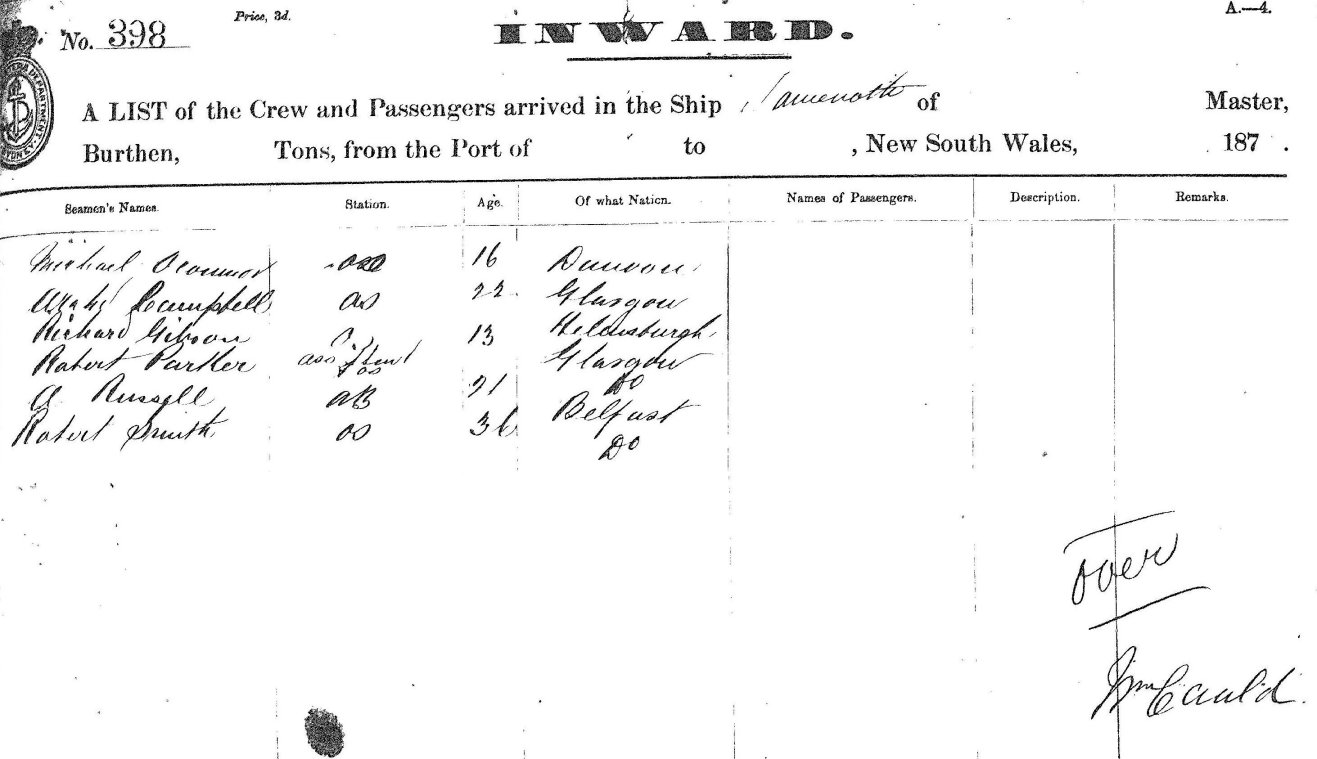 No. 398
Price, 3d.
INWARD.
A.—4.
A LIST of the Crew and Passengers arrived in the Ship of Master,
Burthen, Tons, from the Port of to , New South Wales, 187 .
Seamen's Names. Station. Age. Of what Nation. Names of Passengers. Description. Remarks.
Michael Oconnor 16 Dunoon
Campbell os 22 Glasgow
Richard Gibson 13 Helensburgh
Robert Parker Glasgow
A Russell AB 21 Do
Belfast
Robert Smith os 36 Do
over
Wm Cauld